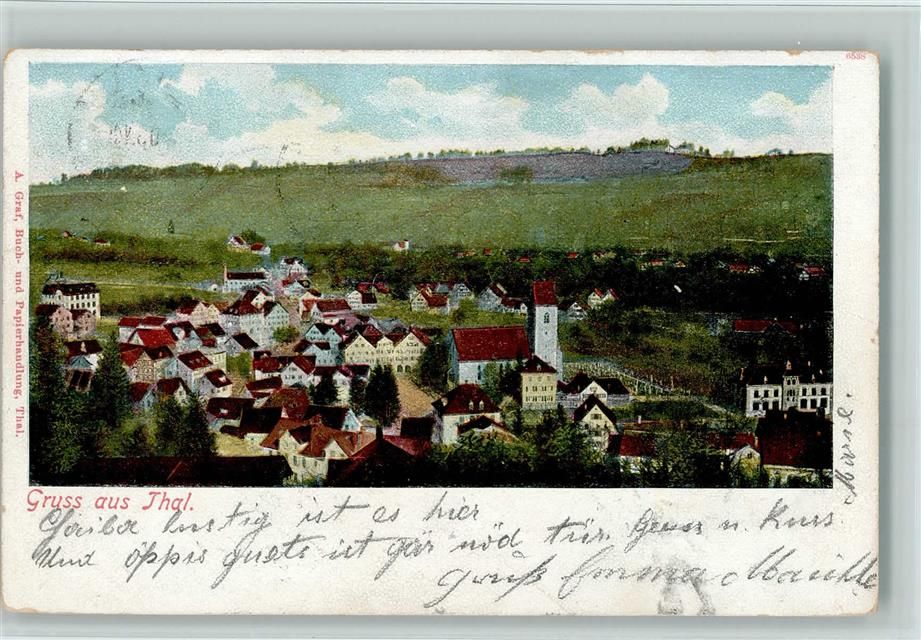 6538
A. Graf, Buch- und Papierhandlung, Thal.
Gruss aus Thal.
Chaiba lustig ist es hier
Und öppis guets ist gär nöd tür. u. Kuss
Gruß Emma